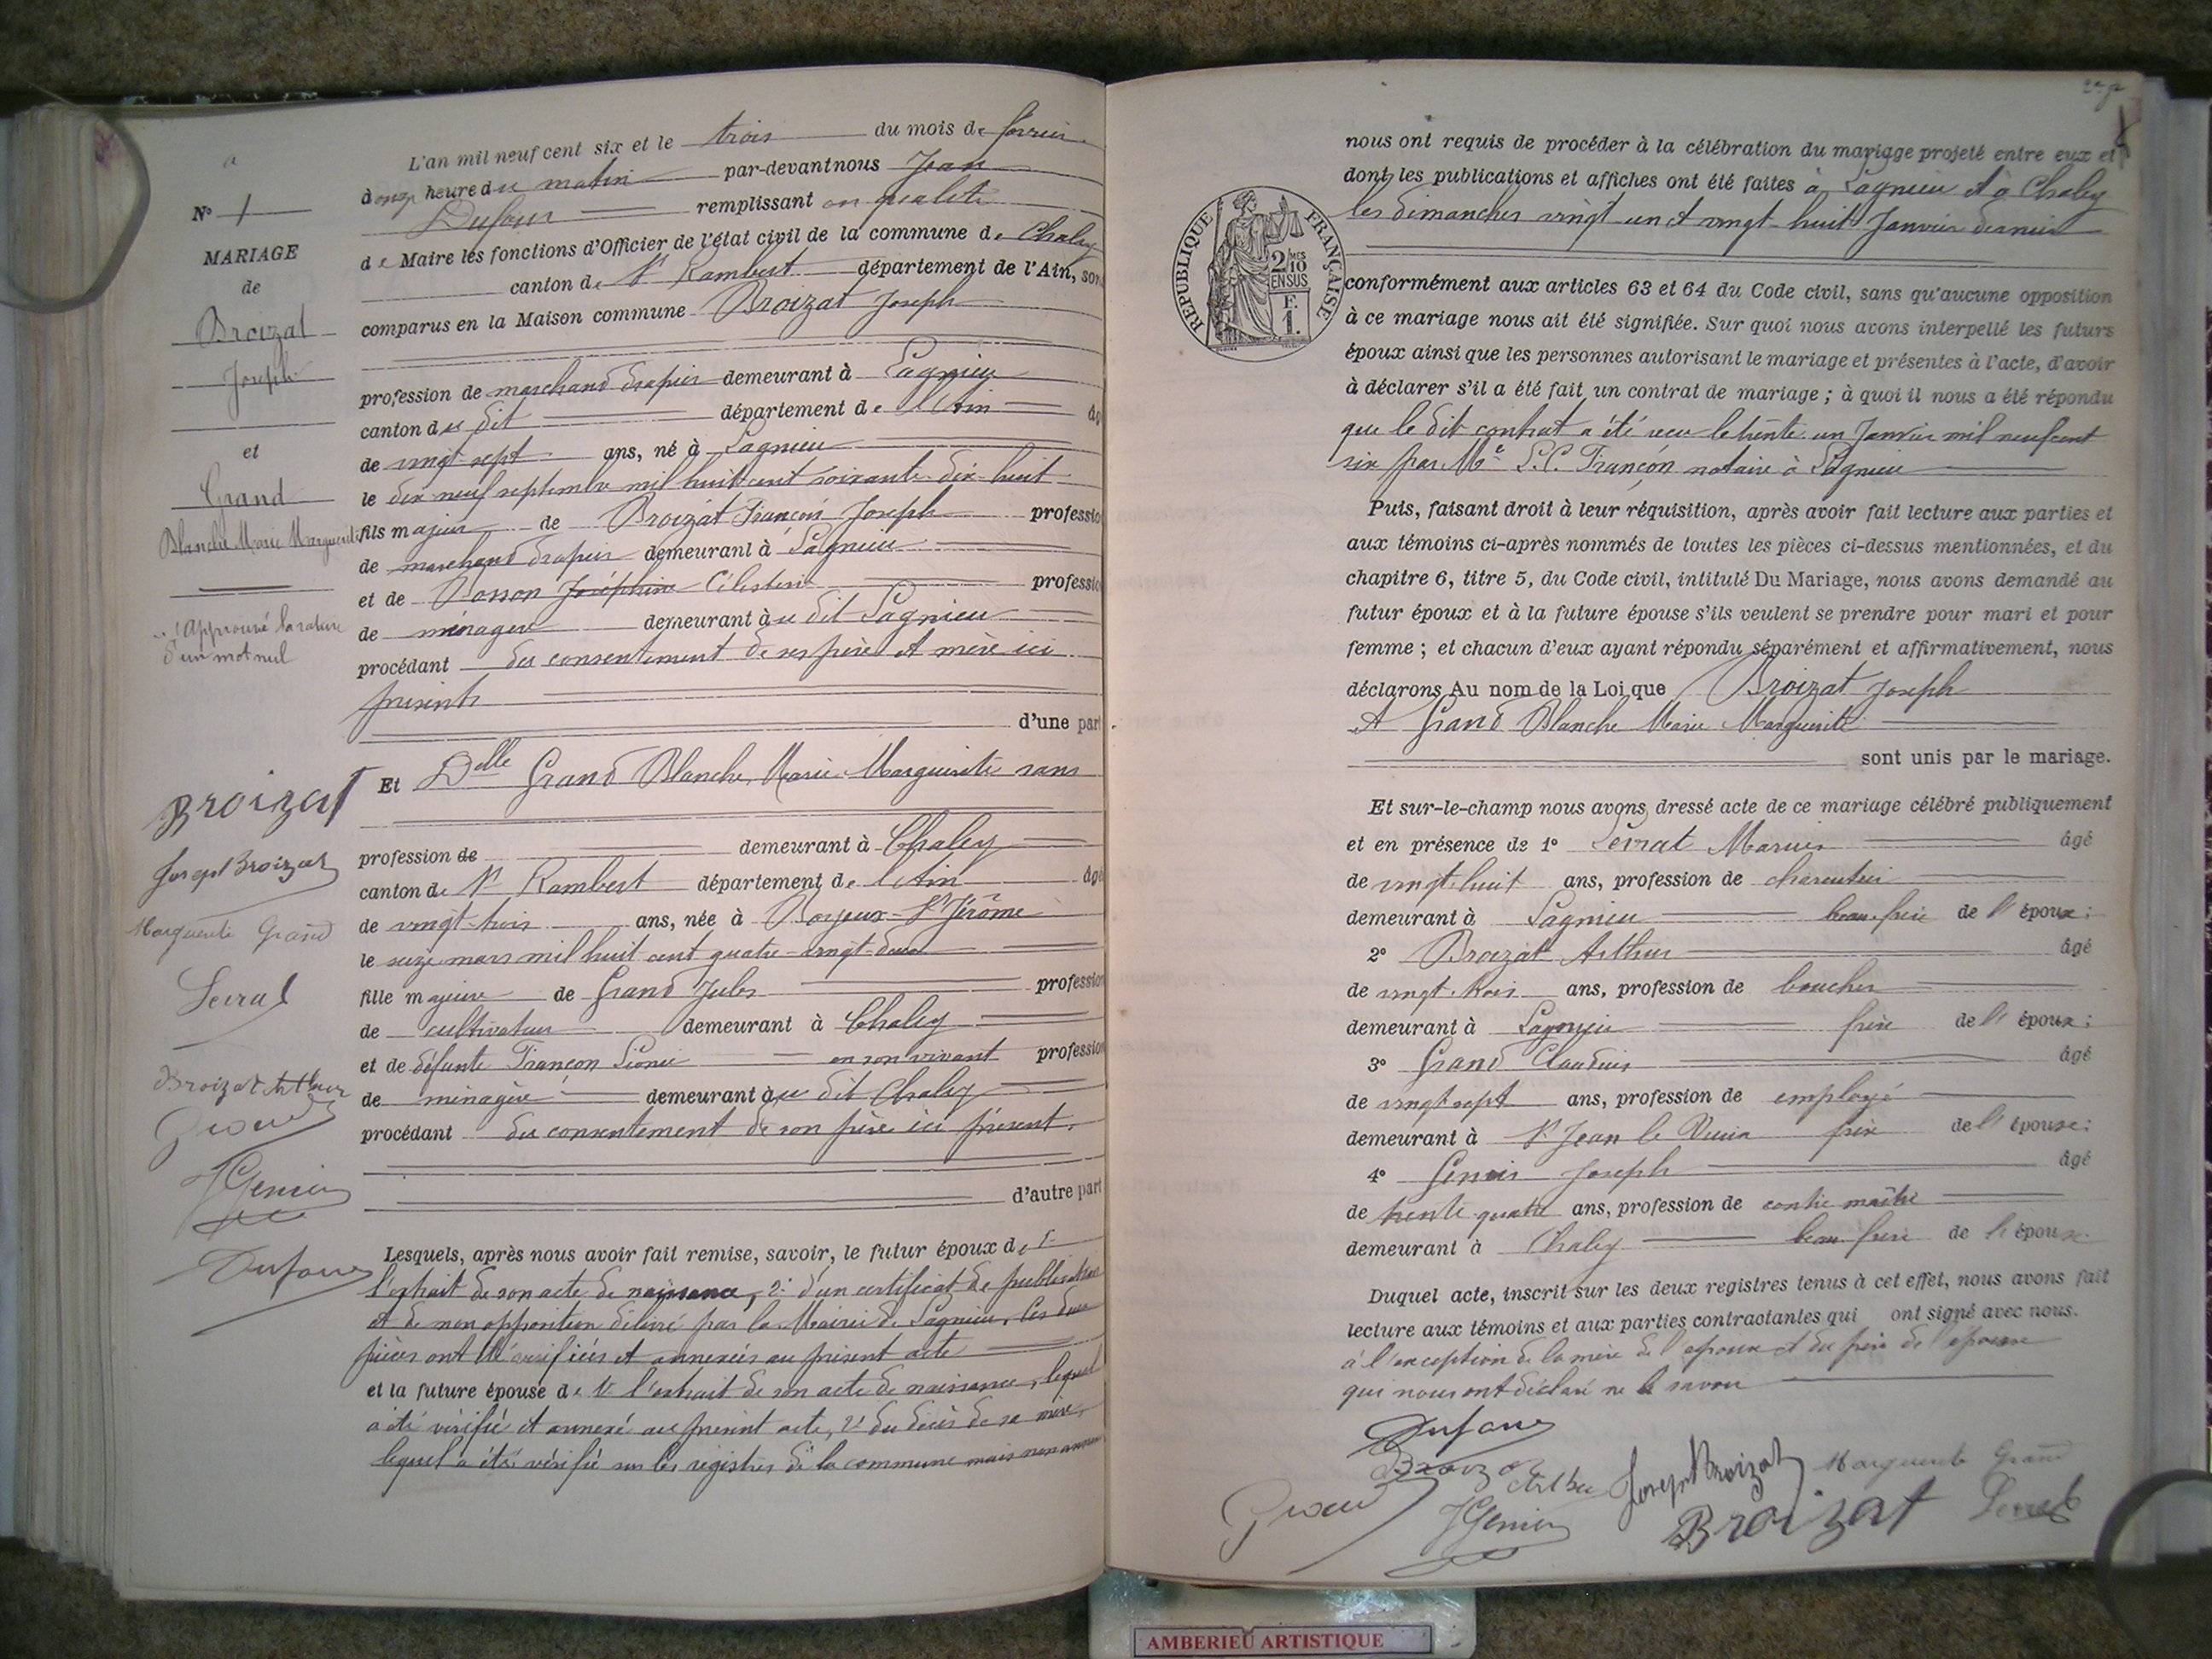 N° 1
MARIAGE
de
Broizat
Joseph
et
Grand
Blanche Marie Marguerite
Approuvé la rature
d'un mot nul
Broizat
Joseph Broizat
Marguerite Grand
Broizat Arthur
JGenin
Dufour
L'an mil neuf cent six et le trois du mois de février
à onze heure du matin par-devant nous Jean
Dufour remplissant en qualité
de Maire les fonctions d'Officier de l'état civil de la commune de Chaley
canton de St Rambert département de l'Ain, son
comparus en la Maison commune Broizat Joseph
profession de marchand drapier demeurant à Lagnieu
canton du dit département de l'Ain âg
de vingt sept ans, né à Lagnieu
le dix neuf septembre mil huit cent soixante-dix-huit
fils majeur de Broizat François Joseph professio
de marchand drapier demeurant à Lagnieu
et de Bosson Joséphine Célestine professio
de ménagère demeurant au dit Lagnieu
procédant du consentement de ses père et mère ici
présents
d'une part
Et Delle Grand Blanche Marie Marguerite sans
profession de demeurant à Chaley
canton de St Rambert département de l'Ain âgé
de vingt-trois ans, née à Boyeux-St Jérôme
le seize mars mil huit cent quatre-vingt-deux
fille majeure de Grand Jules profession
de cultivateur demeurant à Chaley
et de défunte Françon en son vivant profession
de ménagère demeurant au dit Chaley
procédant du consentement de son père ici présent.
d'autre part
Lesquels, après nous avoir fait remise, savoir, le futur époux de 1°
l'extrait de son acte de naissance, 2° d'un certificat de publication
et de non opposition délivré par la Mairie de Lagnieu, les deux
pièces ont été vérifiées et annexées au présent acte
et la future épouse de 1° l'extrait de son acte de naissance, lequel
a été vérifié et annexé au présent acte, 2° du décès de sa mère,
lequel a été vérifié sur les registres de la commune mais non annexé
nous ont requis de procéder à la célébration du mariage projeté entre eux et
dont les publications et affiches ont été faites à Lagnieu et à Chaley
les dimanches vingt un et vingt-huit Janvier dernier
RÉPUBLIQUE FRANÇAISE
2/10 MES
EN SUS
F.
1.
conformément aux articles 63 et 64 du Code civil, sans qu'aucune opposition
à ce mariage nous ait été signifiée. Sur quoi nous avons interpellé les futurs
époux ainsi que les personnes autorisant le mariage et présentes à l'acte, d'avoir
à déclarer s'il a été fait un contrat de mariage ; à quoi il nous a été répondu
que le dit contrat a été reçu le trente un Janvier mil neuf cent
six par Me Françon, notaire à Lagnieu
Puis, faisant droit à leur réquisition, après avoir fait lecture aux parties et
aux témoins ci-après nommés de toutes les pièces ci-dessus mentionnées, et du
chapitre 6, titre 5, du Code civil, intitulé Du Mariage, nous avons demandé au
futur époux et à la future épouse s'ils veulent se prendre pour mari et pour
femme ; et chacun d'eux ayant répondu séparément et affirmativement, nous
déclarons Au nom de la Loi que Broizat Joseph
et Grand Blanche Marie Marguerite
sont unis par le mariage.
Et sur-le-champ nous avons dressé acte de ce mariage célébré publiquement
et en présence de 1° Marius âgé
de vingt-huit ans, profession de charcutier
demeurant à Lagnieu beau-frère de l'époux ;
2° Broizat Arthur âgé
de vingt-trois ans, profession de boucher
demeurant à Lagnieu frère de l'époux ;
3° Grand Claudius âgé
de vingt sept ans, profession de employé
demeurant à St Jean le Vieux frère de l'épouse ;
4° Genin Joseph âgé
de trente quatre ans, profession de contre maître
demeurant à Chaley beau-frère de l'épouse
Duquel acte, inscrit sur les deux registres tenus à cet effet, nous avons fait
lecture aux témoins et aux parties contractantes qui ont signé avec nous.
à l'exception de la mère de l'époux et du père de l'épouse
qui nous ont déclaré ne le savoir
Dufour
Broizat Arthur Joseph Broizat Marguerite Grand
JGenin Broizat
AMBERIEU ARTISTIQUE